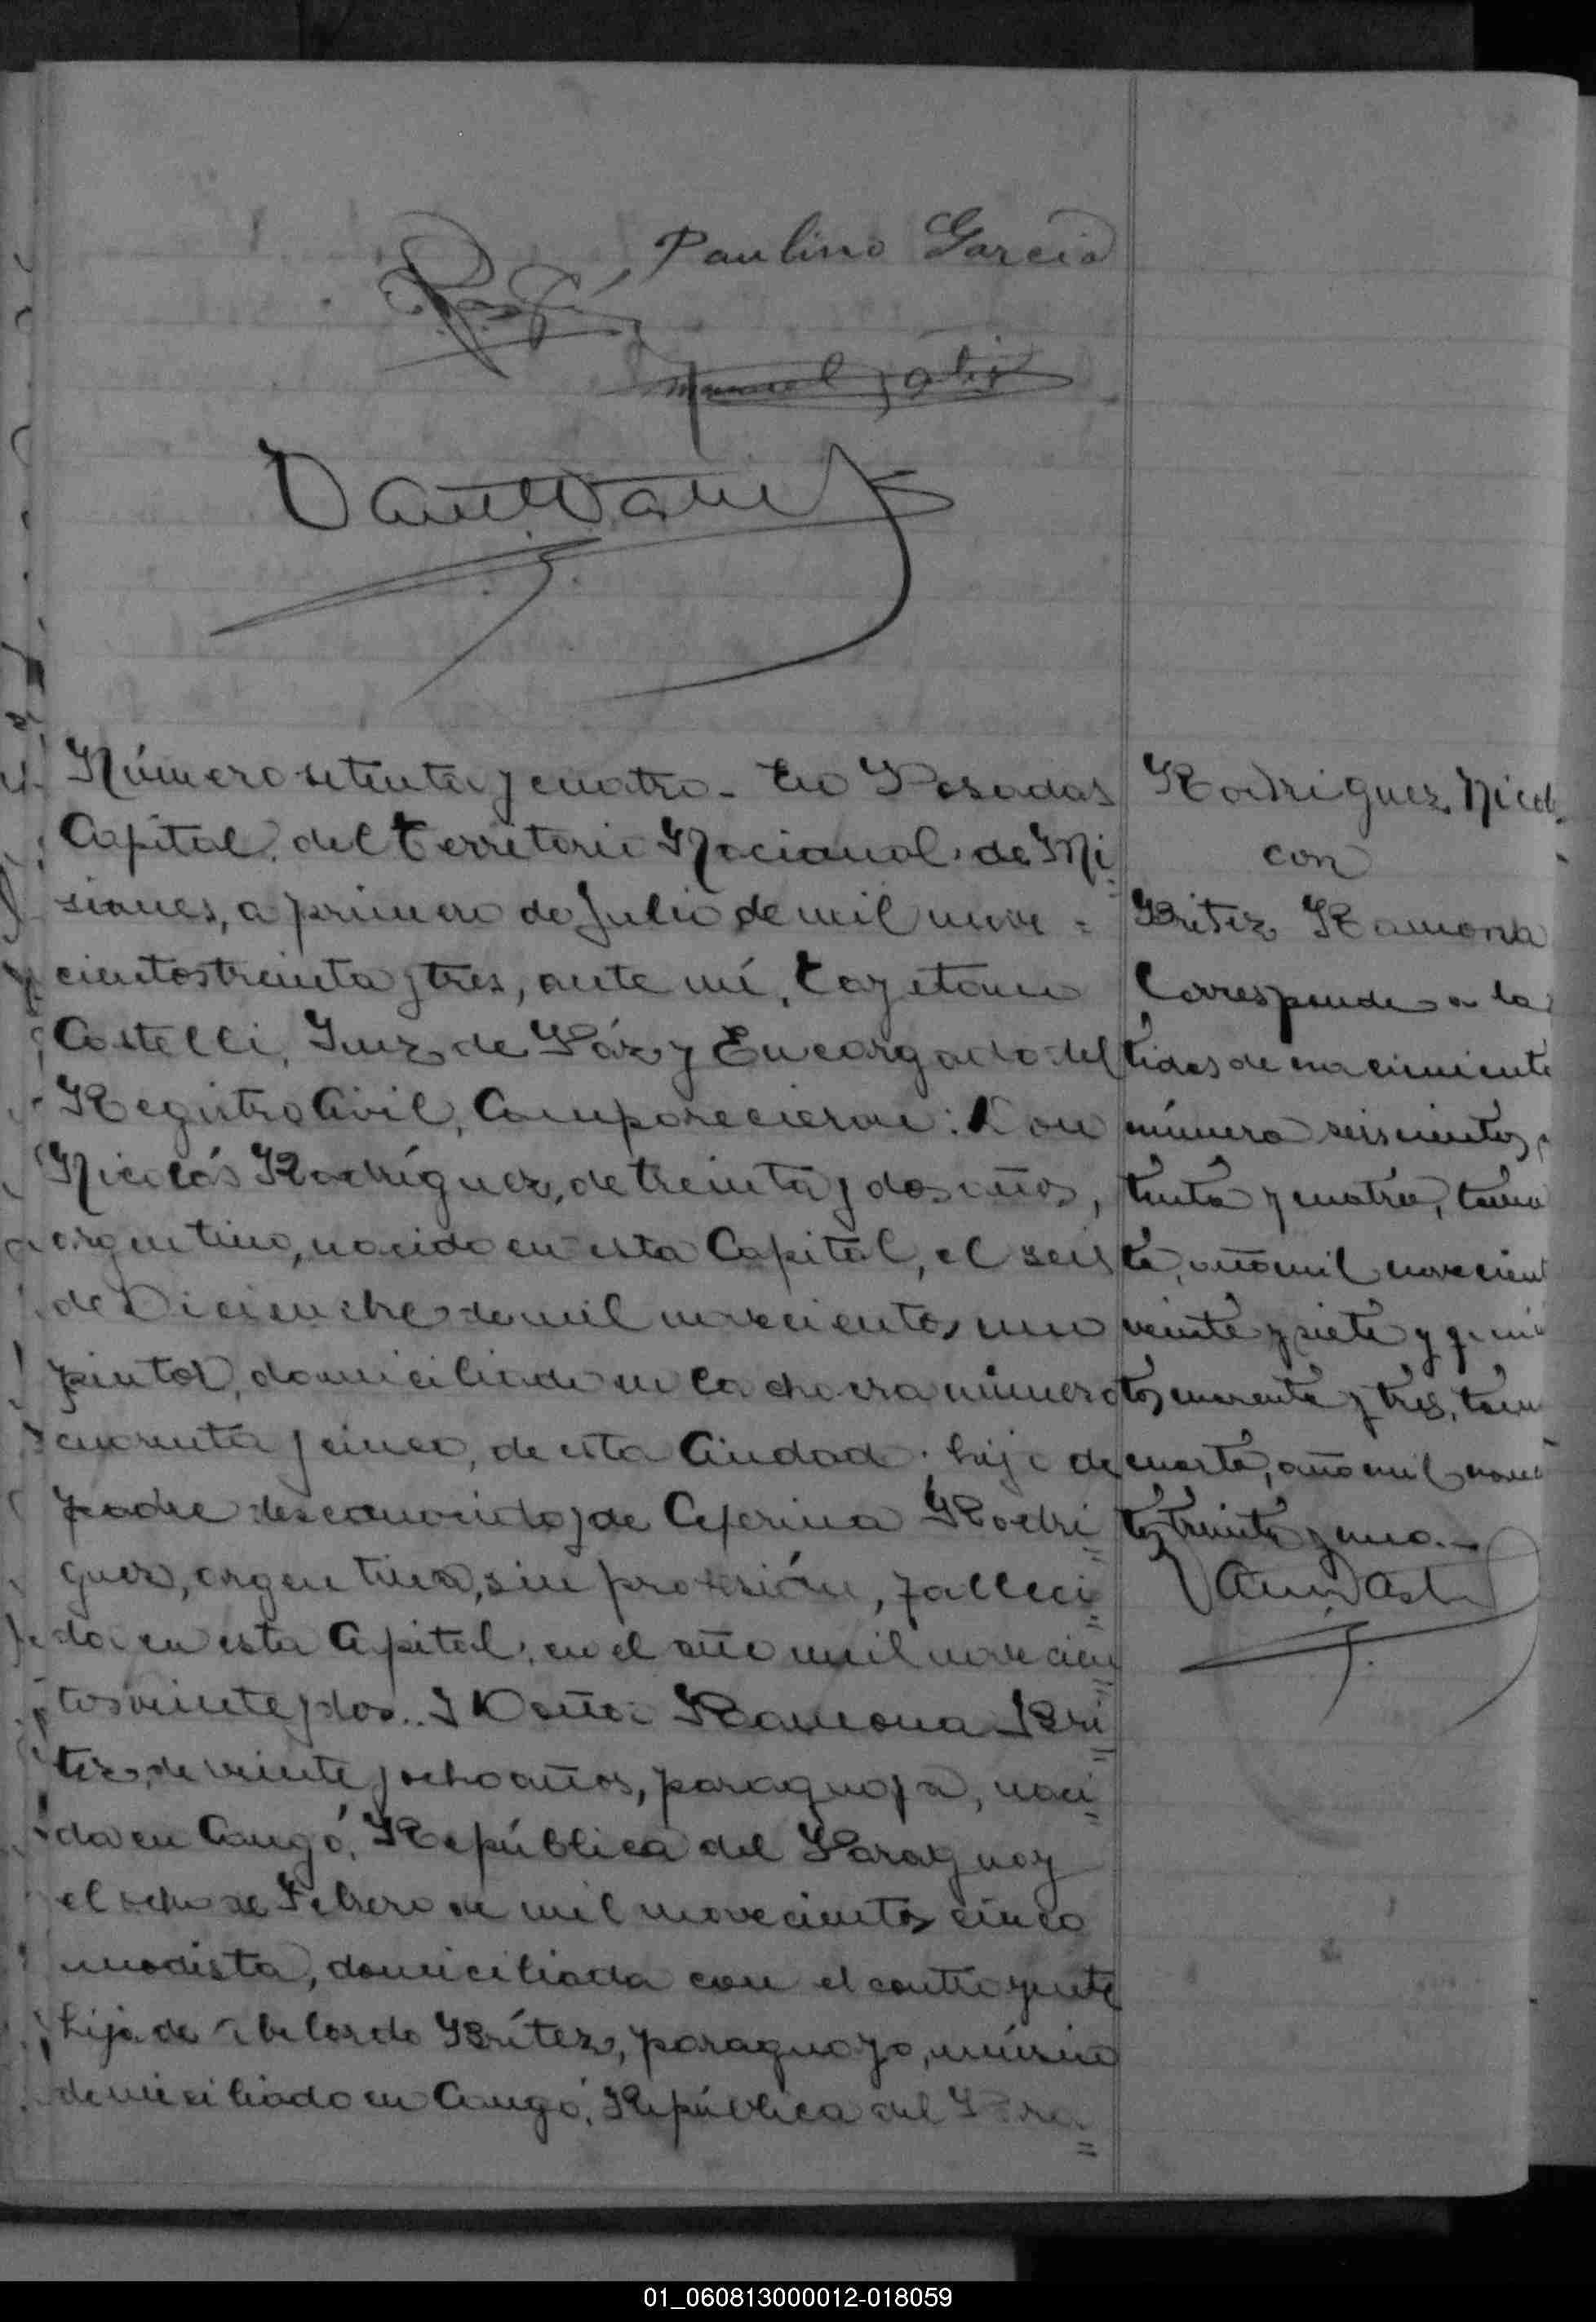 Paulino Garcia
Número setenta y cuatro. En Posadas
Capital del Territorio Nacional de Mi
siones, a primero de Julio de mil nove
cientos treinta y tres, ante mí, Cayetano
Castelli, Juez de Páz y Encargado del
Registro Civil, Comparecieron: Don
Nicolás Rodríguez, de treinta y dos años,
argentino, nacido en esta Capital, el seis
de Diciembre de mil novecientos uno
pintor, domiciliado en la chacra número
cuarenta y cinco, de esta Ciudad. hijo de
padre desconocido y de Ceferina Rodrí
guez, argentina, sin profesión, falleci
da en esta Capital, en el año mil novecien
tos veinte y dos.. Y Doña Ramona Brí
tez, de veinte y ocho años, paraguaya, naci
da en Cangó, República del Paraguay
el ocho de Febrero de mil novecientos cinco
modista, domiciliada con el contrayente
hija de Abelardo Brítez, paraguayo, músico
domiciliado en Cangó, República del Para
Rodriguez, Nicol
con
Britez Ramona
Corresponde a la
tidas de nacimiento
número seiscientos
tenta y cuatro, tomo
te, año mil novecient
veinte y siete y quini
tos cuarenta y tres, tom
cuarto, año mil nove
tos treinta y uno.-
01_060813000012-018059